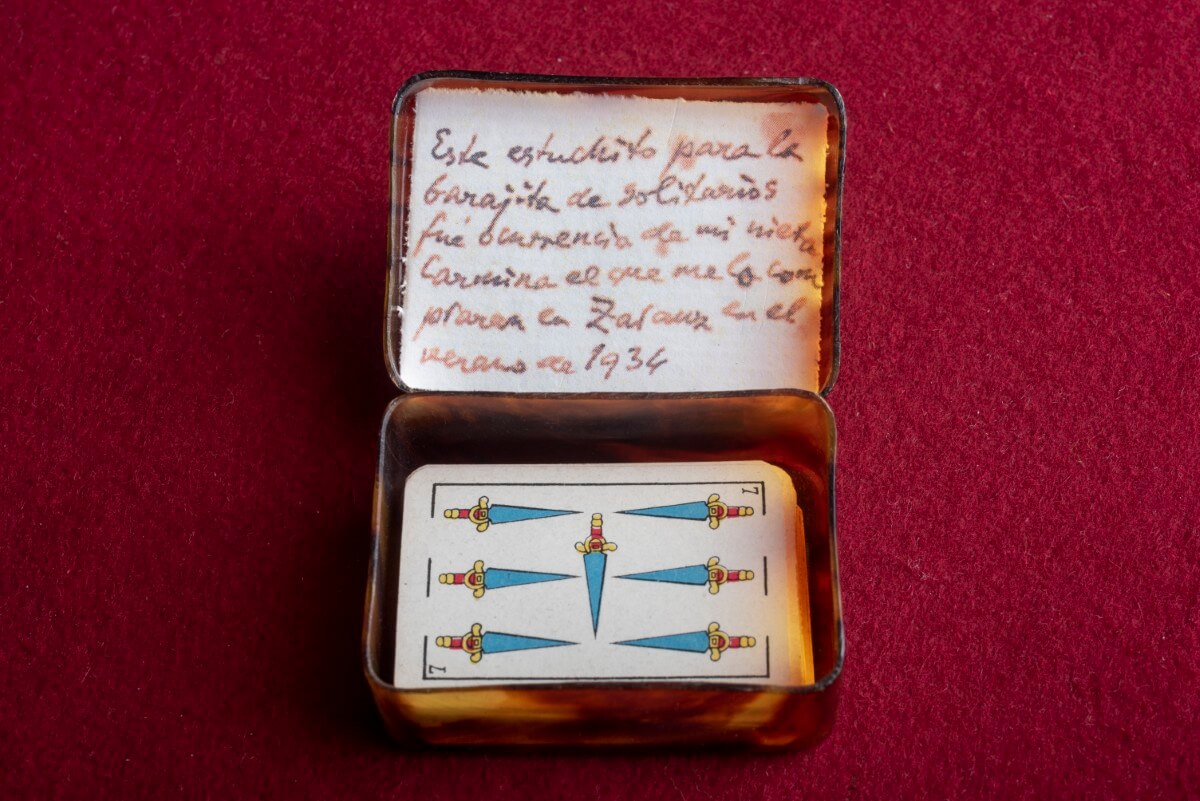 Este estuchito para la
barajita de solitarios
fué ocurrencia de mi nieta
Carmina el que me lo com
praran en Zarauz en el
verano de 1934
7
7